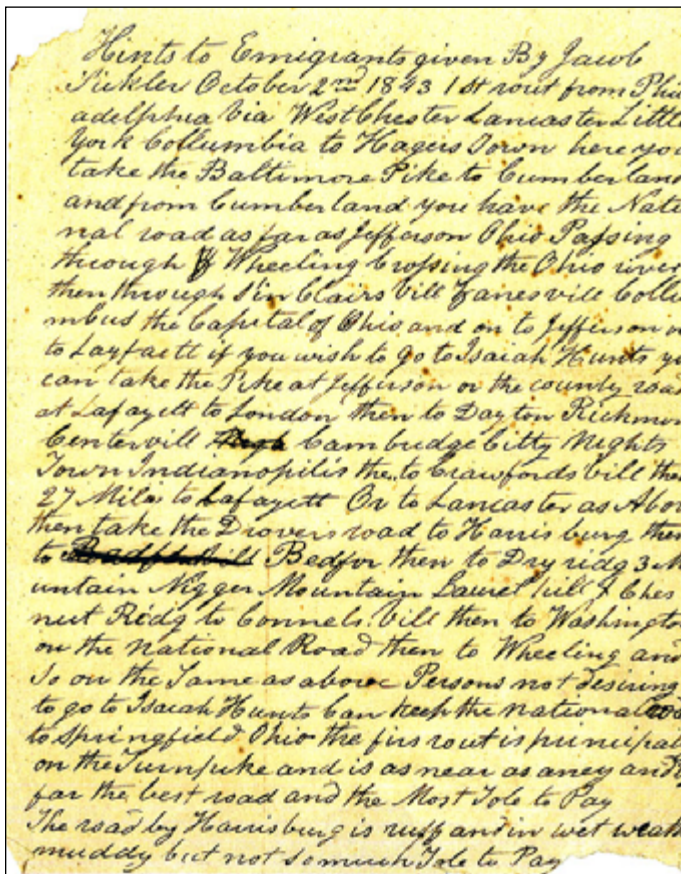 Hints to Emigrants given By Jacob
Sickler October 2nd 1843 1st rout from Phil
adelphia Via WestChester Lancaster Little
York Collumbia to Hagers Town here you
take the Baltimore Pike to Cumberland
and from Cumberland you have the Natio
nal road as far as Jefferson Ohio Passing
through Wheeling Crossing the Ohio river
then through Sin Clairs vill Zanesvill Collu
mbus the Capital of Ohio and on to Jefferson or
to Layfaett if you wish to go to Isaiah Hunts yo
can take the Pike at Jefferson or the county road
at Lafayett to London then to Dayton Richmon
Centervill Cambudge Citty Nights
Town Indianopilis the to Crawfords vill then
27 Mile to Lafayett Or to Lancaster as Abov
then take the Drovers road to Harrisburg then
to Bedfor then to Dry ridg 3 M
untain Nigger Mountain Laurel hill & Ches
nut Redg to Connels vill then to Washington
on the National Road then to Wheeling and
So on the Same as above Persons not desiring
to go to Isaiah Hunts Can keep the national roa
to Springfield Ohio the firs rout is principal
on the Turnpike and is as near as aney and
far the best road and the Most Tole to Pay
The road by Harrisburg is ruff and in wet weath
muddy but not so much Tole to Pay